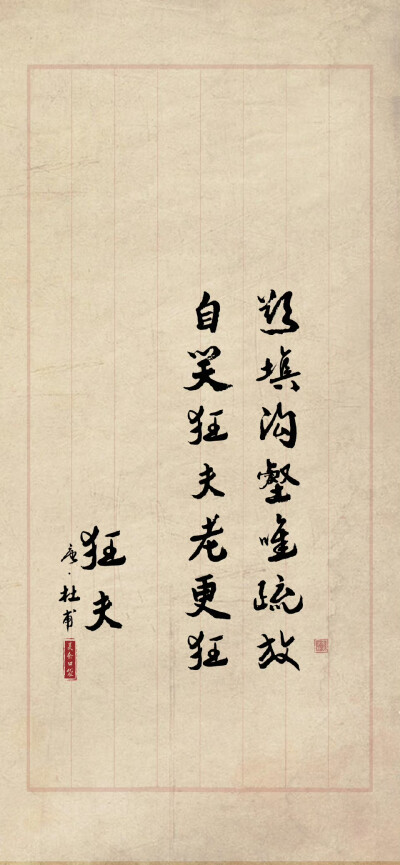 欲填沟壑唯疏放
自笑狂夫老更狂
狂夫
唐·杜甫